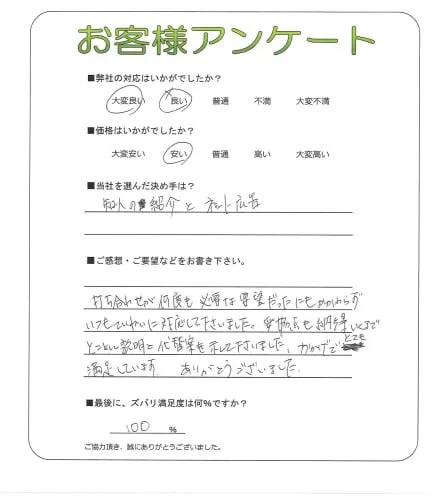 お客様アンケート
■弊社の対応はいかがでしたか？
大変良い 良い 普通 不満 大変不満
■価格はいかがでしたか？
大変安い 安い 普通 高い 大変高い
■当社を選んだ決め手は？
知人の紹介と ネット広告
■ご感想・ご要望などをお書き下さい。
打ち合わせが何度も必要な要望だったにもかかわらず
いつもていねいに対応して下さいました。変換点も納得いくまで
とことん説明と代替案を示して下さいました。おかげで とても
満足しています。 ありがとうございました。
■最後に、ズバリ満足度は何％ですか？
100 %
ご協力頂き、誠にありがとうございました。